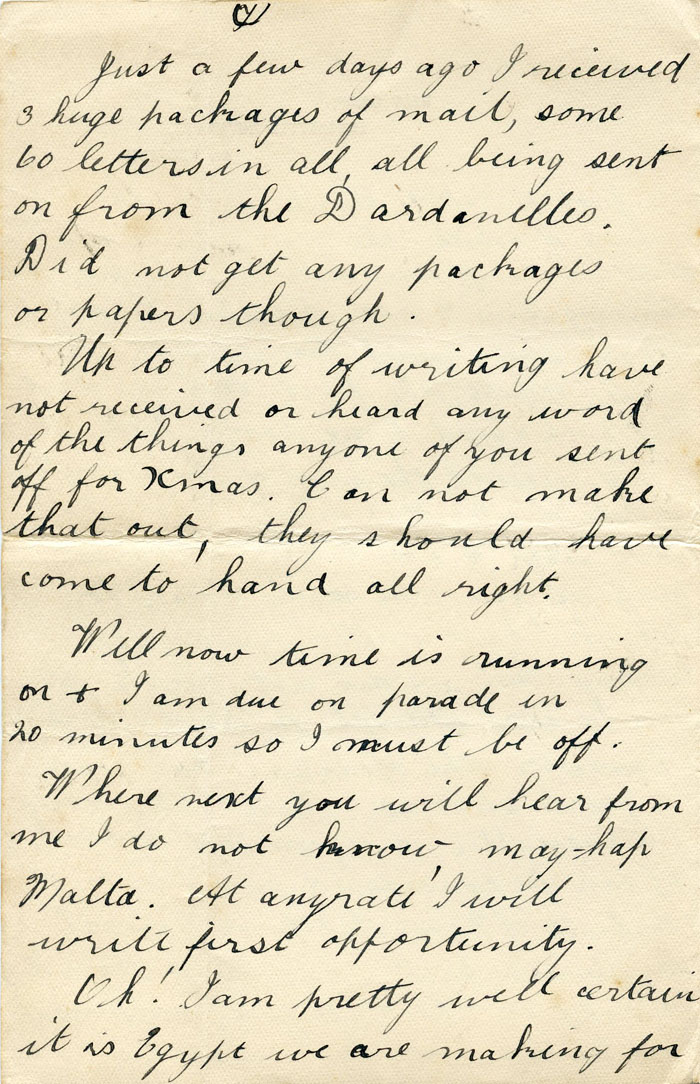 Just a few days ago I received
3 huge packages of mail, some
60 letters in all, all being sent
on from the Dardanelles.
Did not get any packages
or papers though.
Up to time of writing have
not received or heard any word
of the things anyone of you sent
off for Xmas. Can not make
that out, they should have
come to hand all right.
Well now time is running
on + I am due on parade in
20 minutes so I must be off.
Where next you will hear from
me I do not know, may-hap
Malta. At anyrate I will
write first opportunity.
Oh! I am pretty well certain
it is Egypt we are making for